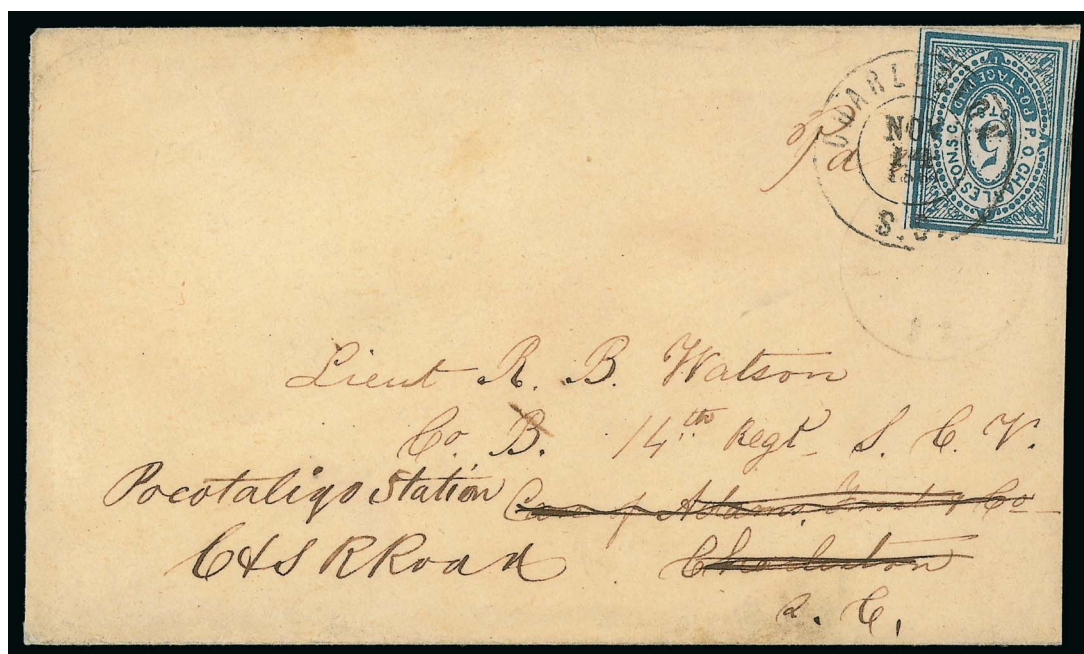 CHARLESTON
NOV
S.C.
P.O. CHARLESTON. S.C.
POSTAGE PAID
5
Pd
Lieut R. B. Watson
Co. B. 14th Regt S. C. V.
Pocotaligo Station Care of Adams & Co
C & S R Road Charleston
S. C.